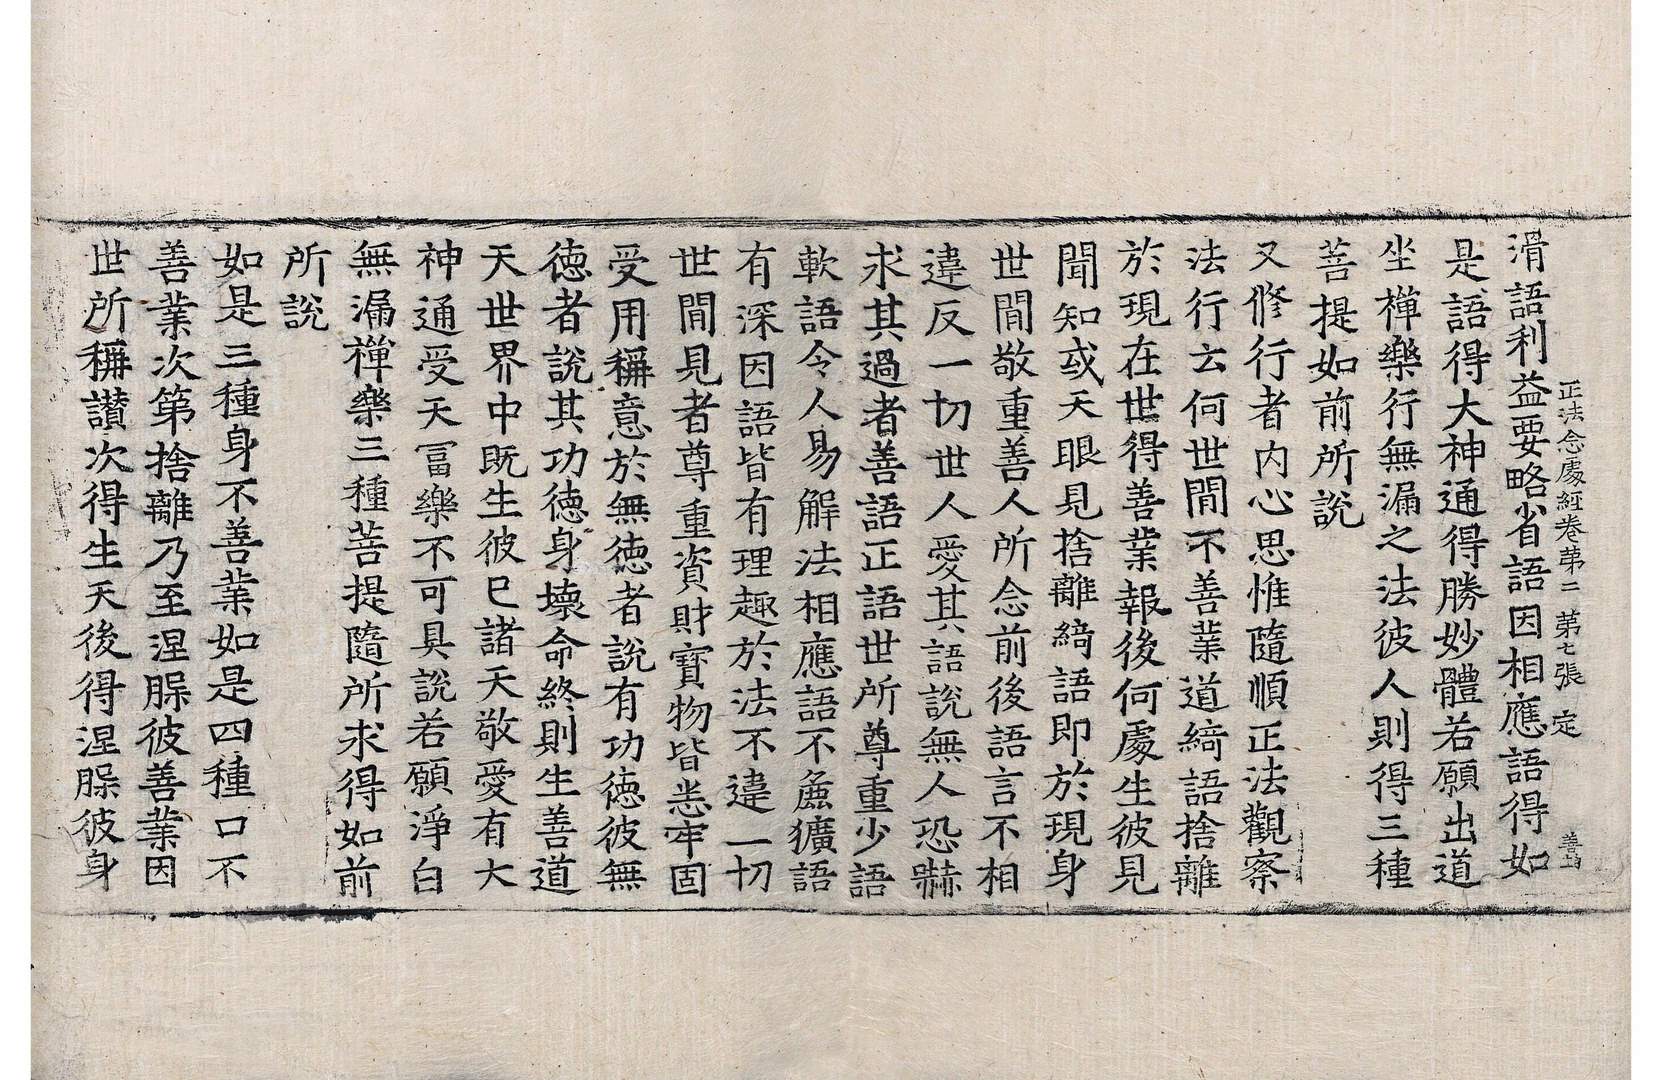 正法念處經卷第二 第七張 定
滑語利益要略省語因相應語得如
是語得大神通得勝妙體若願出道
坐禪樂行無漏之法彼人則得三種
菩提如前所說
又修行者內心思惟隨順正法觀察
法行云何世間不善業道綺語捨離
於現在世得善業報後何處生彼見
聞知或天眼見捨離綺語即於現身
世間敬重善人所念前後語言不相
違反一切世人愛其語說無人恐嚇
求其過者善語正語世所尊重少語
軟語令人易解法相應語不麁獷語
有深因語皆有理趣於法不違一切
世間見者尊重資財寶物皆悉牢固
受用稱意於無德者說有功德彼無
德者說其功德身壞命終則生善道
天世界中既生彼已諸天敬愛有大
神通受天冨樂不可具說若願淨白
無漏禪樂三種菩提隨所求得如前
所說
如是三種身不善業如是四種口不
善業次第捨離乃至涅槃彼善業因
世所稱讃次得生天後得涅槃彼身